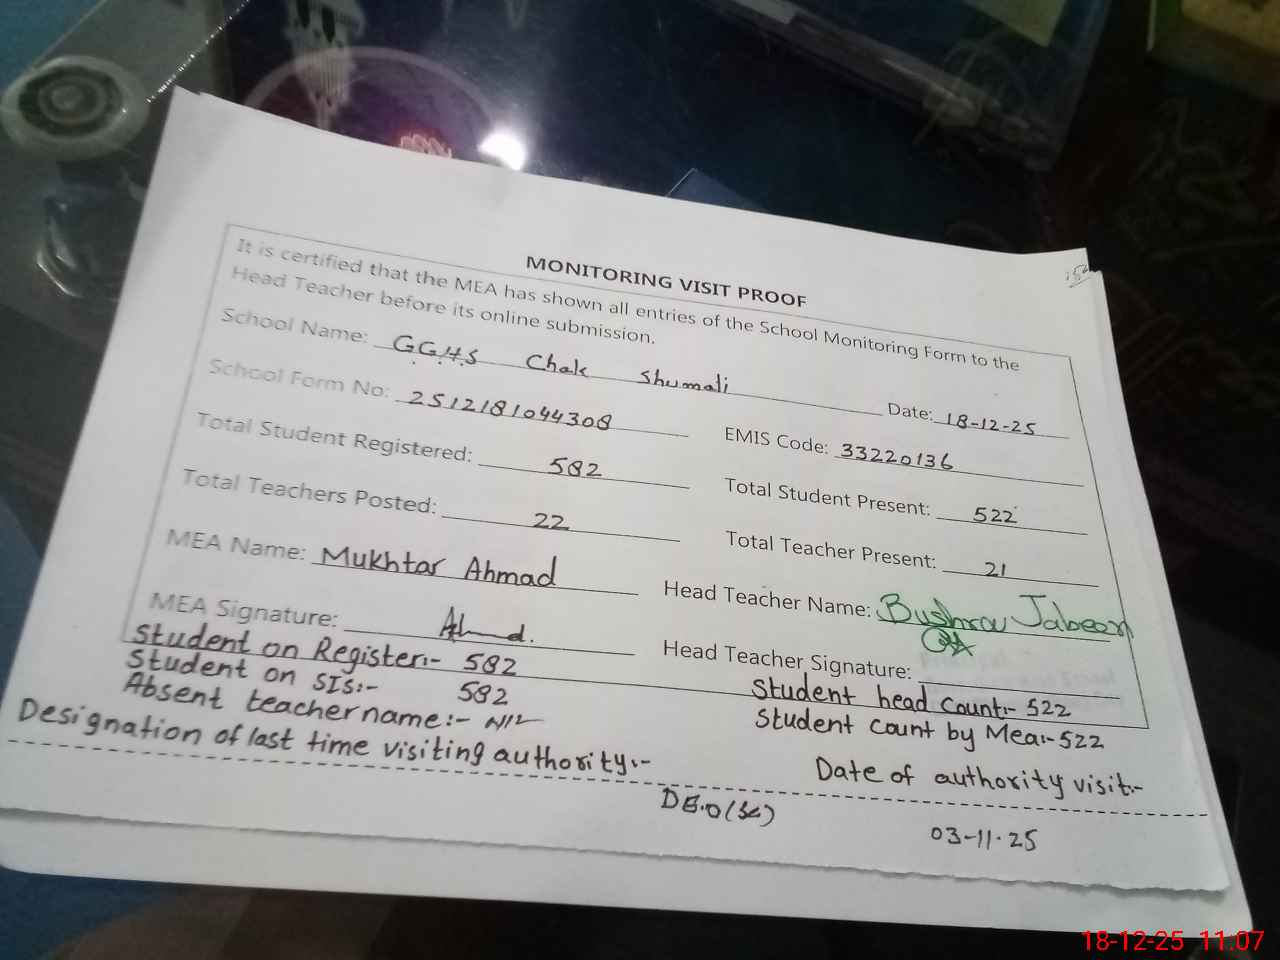 MONITORING VISIT PROOF
It is certified that the MEA has shown all entries of the School Monitoring Form to the
Head Teacher before its online submission.
School Name: G.G.H.S Chak Shumali Date: 18-12-25
School Form No: 2512181044308 EMIS Code: 33220136
Total Student Registered: 582 Total Student Present: 522
Total Teachers Posted: 22 Total Teacher Present: 21
MEA Name: Mukhtar Ahmad Head Teacher Name: Bushra Jabeen
MEA Signature: Head Teacher Signature:
Student on Register:- 582 Student head Count:- 522
Student on SIS:- 582 Student count by Mea:- 522
Absent teacher name:- NIL
Designation of last time visiting authority:- Date of authority visit:-
D.E.O (SE) 03-11-25
18-12-25 11:07